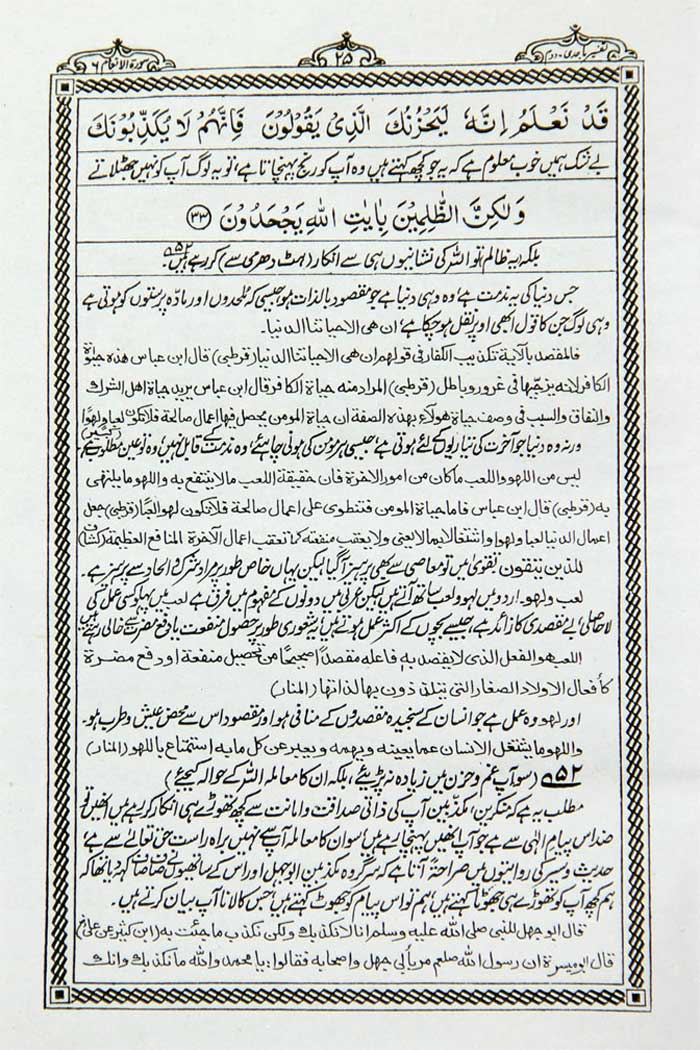 تفسیر ماجدی۔ دوم
۲۵
سورۃ الانعام ۶
قَدْ نَعْلَمُ اِنَّهٗ لَیَحْزُنُكَ الَّذِیْ یَقُوْلُوْنَ فَاِنَّهُمْ لَا یُكَذِّبُوْنَكَ
بے شک ہمیں خوب معلوم ہے کہ یہ جو کچھ کہتے ہیں وہ آپ کو رنج پہنچاتا ہے، تو یہ لوگ آپ کو نہیں جھٹلاتے
وَلٰكِنَّ الظّٰلِمِیْنَ بِاٰیٰتِ اللّٰهِ یَجْحَدُوْنَ ﴿۳۳﴾
بلکہ یہ ظالم تو اللہ کی نشانیوں ہی سے انکار (ہٹ دھرمی سے) کر رہے ہیں۔ ۵۲
جس دنیا کی یہ مذمت ہے، وہ وہی دنیا ہے جو مقصود بالذات ہو، جیسی کہ ملحدوں اور مادّہ پرستوں کو ہوتی ہے
وہی لوگ جن کا قول ابھی اوپر نقل ہو چکا ہے، ان ھی الاحیاتنا الدنیا۔
فالمقصد بالآیة تکذیب الکفار فی قولھم ان ھی الاحیاتنا الدنیا (قرطبی) قال ابن عباس ھذہ حیاۃ
الکافر لانہ یزجیھا فی غرور و باطل (قرطبی) المراد منہ حیاۃ الکافر قال ابن عباس یرید حیاۃ اھل الشرك
والنفاق والسبب فی وصف حیاۃ ھولاء بھذہ الصفة ان حیاۃ المومن یحصل فیھا اعمال صالحة فلاتکون لعبا ولھوا
ورنہ وہ دنیا جو آخرت کی تیاریوں کے لئے ہوتی ہے، جیسی ہر مومن کی ہونی چاہئے، وہ مذمت کے قابل نہیں، وہ تو عین مطلوب ہے (کبیر)
لیس من اللھو واللعب ماکان من امور الاخرۃ فان حقیقة اللعب مالاینتفع بہ واللھو مایلتھی
بہ (قرطبی) قال ابن عباس فاما حیاۃ المومن فتنطوی علی اعمال صالحة فلاتکون لھوالعبًا (قرطبی) جعل
اعمال الدنیا لعبا ولھوا واشتغالا بمالایعنی ولایعقب منفعته کما تعقب اعمال الآخرۃ المنافع العظیمة (کشاف)
للذین یتقون تقویٰ میں تو معاصی سے بھی پرہیز آگیا لیکن یہاں خاص طور پر مراد شرک و الحاد سے پرہیز ہے۔
لعب ولھو۔ اردو میں لہو و لعب ساتھ آتے ہیں لیکن عربی میں دونوں کے مفہوم میں فرق ہے لعب میں پہلو کسی عمل کی
لاحاصلی، بے مقصدی کا زائد ہے، جیسے بچوں کے اکثر عمل ہوتے ہیں، یہ شعوری طور پر حصول منفعت یا دفع مضرت سے خالی رہتے ہیں
اللعب ھو الفعل الذی لایقصد بہٖ فاعلہ مقصداً صحیحًا من تحصیل منفعة او دفع مضرۃ
کأفعال الاولاد الصغار التی یتلذذون بھا لذاتھا (المنار)
اور لھو وہ عمل ہے جو انسان کے سنجیدہ مقصدوں کے منافی ہو اور مقصود اس سے محض عیش و طرب ہو۔
واللھو ما یشغل الانسان عما یعینہ ویھمہ ویعبر عن کل مابہ استمتاع باللھو (المنار)
۵۲ (سو آپ غم و حزن میں زیادہ نہ پڑیئے، بلکہ ان کا معاملہ اللہ کے حوالہ کیجئے)
مطلب یہ ہے کہ منکرین، مکذبین آپ کی ذاتی صداقت و امانت سے کچھ تھوڑے ہی انکار کر رہے ہیں انھیں تو
ضد اس پیام الٰہی سے ہے جو آپ انھیں پہنچا رہے ہیں، سو ان کا معاملہ آپ سے نہیں براہ راست حق تعالےٰ سے ہے،
حدیث و سیر کی روایتوں میں صراحةً آتا ہے کہ سرگروہ مکذبین ابو جہل اور اس کے ساتھیوں نے صاف صاف کہہ دیا تھا کہ
ہم کچھ آپ کو تھوڑے ہی جھوٹا کہتے ہیں، ہم تو اس پیام کو جھوٹ کہتے ہیں جس کا لانا آپ بیان کرتے ہیں۔
قال ابو جھل للنبی صلی اللہ علیہ وسلم انا لانکذبك ولکن نکذب ماجئت بہ (ابن کثیر عن علیؓ)
قال ابو میسرۃ ان رسول اللہ صلعم مر بأبی جھل واصحابہ فقالوا یا محمد واللہ مانکذبك وانك